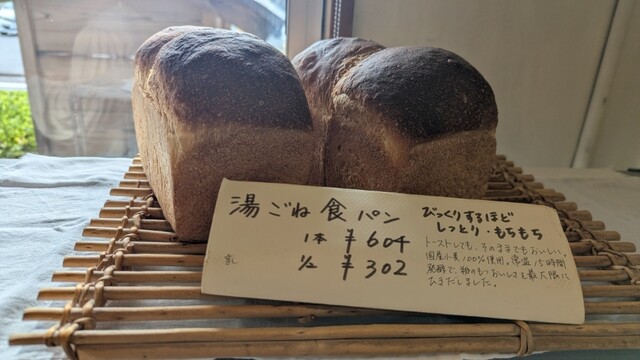 湯ごね食パン
1本 ¥604
1/2 ¥302
乳
びっくりするほど
しっとり・もちもち
トーストしても、そのままでもおいしい。
国産小麦100%使用。常温15時間
発酵で、粉のもつおいしさを最大限に
ひきだしました。